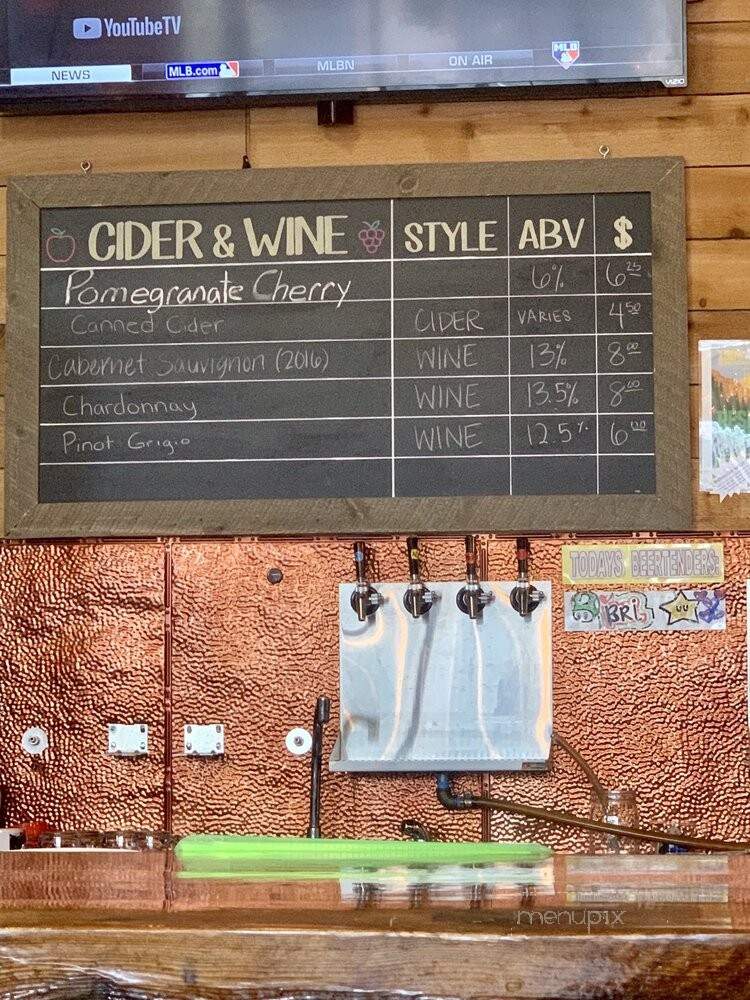 YouTubeTV
NEWS MLB.com MLBN ON AIR MLB
VIZIO
CIDER & WINE STYLE ABV $
Pomegranate Cherry 6% 6.25
Canned Cider CIDER VARIES 4.50
Cabernet Sauvignon (2016) WINE 13% 8.00
Chardonnay WINE 13.5% 8.00
Pinot Grigio WINE 12.5% 6.00
TODAYS BEERTENDERS:
BRI
menupix